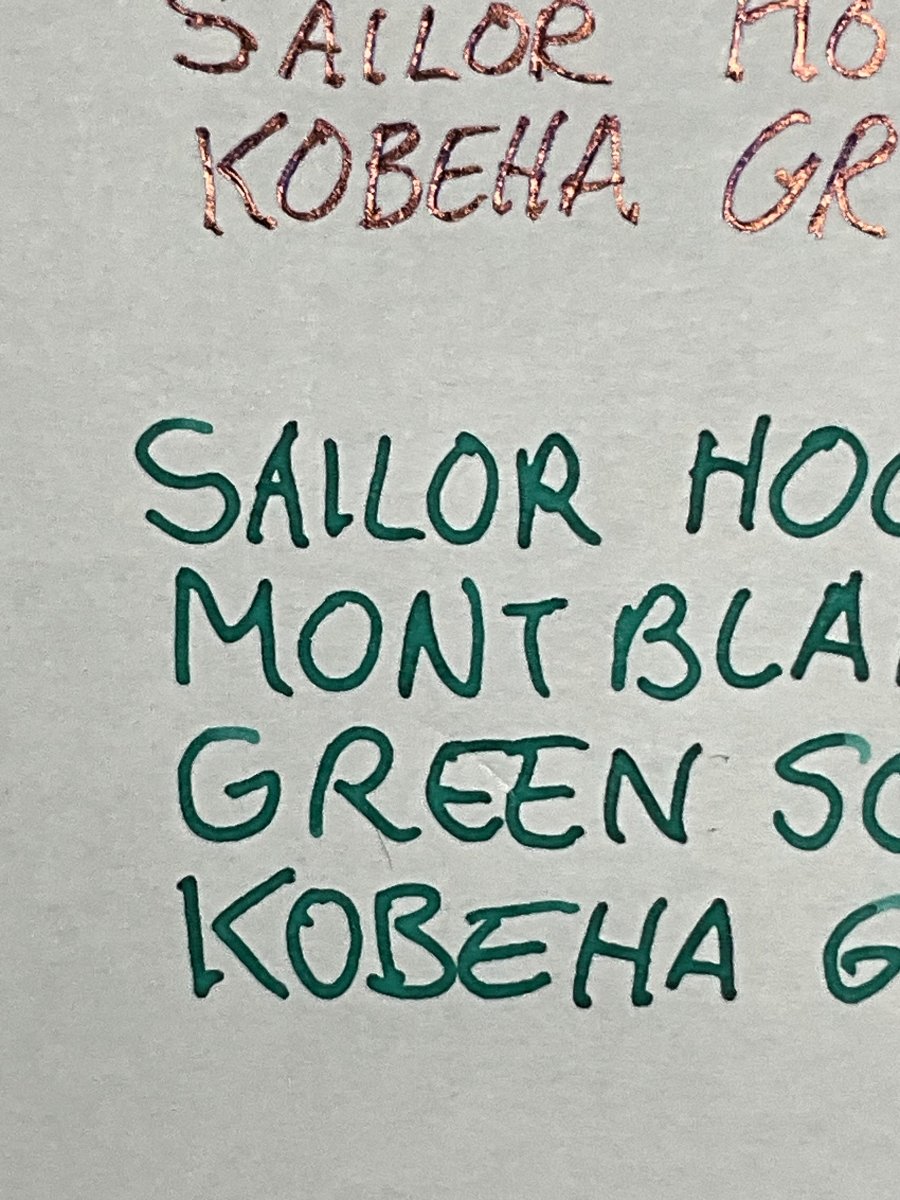 SAILOR HO
KOBEHA GR
SAILOR HOC
MONTBLA
GREEN SO
KOBEHA G